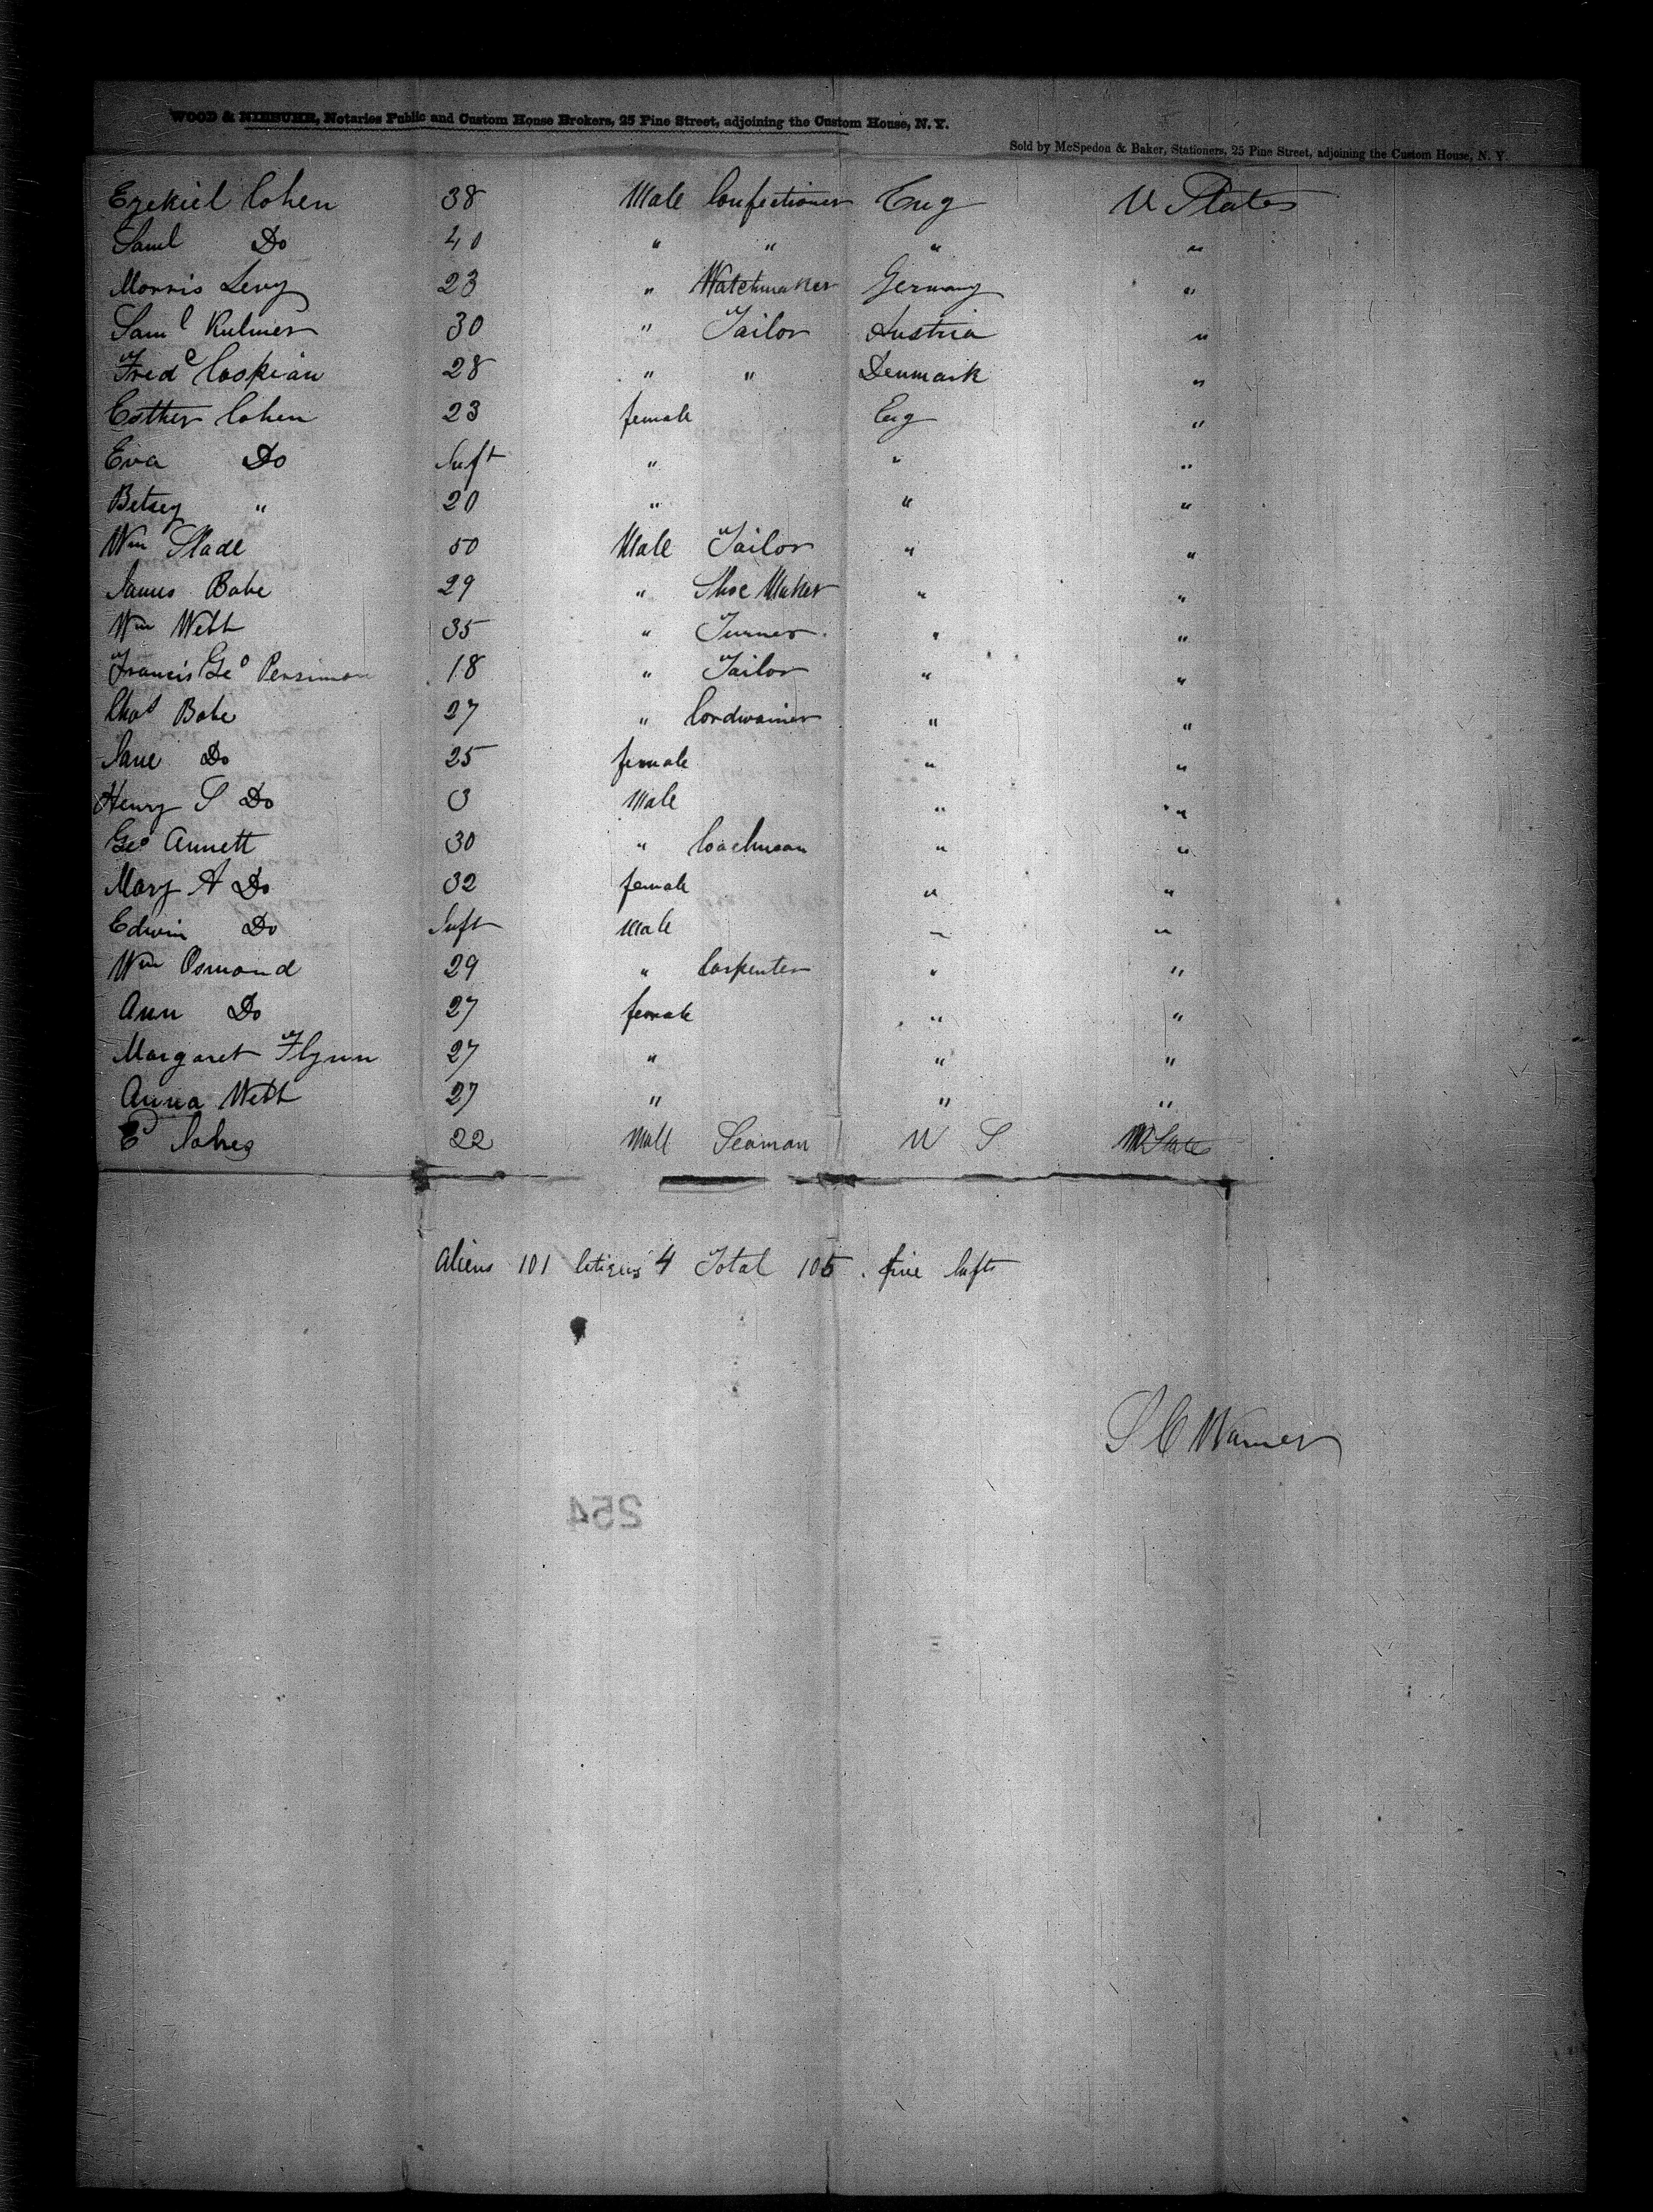 WOOD & NIEBUHR, Notaries Public and Custom House Brokers, 25 Pine Street, adjoining the Custom House, N. Y.
Sold by McSpedon & Baker, Stationers, 25 Pine Street, adjoining the Custom House, N. Y.
Ezekiel Cohen 38 Male Confectioner Eng U States
Saml Do 40 " " " "
Morris Levy 23 " Watchmaker Germany "
Saml Kulmer 30 " Tailor Austria "
Fred 28 " " Denmark "
Esther Cohen 23 female Eng "
Eva Do Inft " " "
Betsey " 20 " " "
Wm Slade 50 Male Tailor " "
James Babe 29 " Shoe Maker " "
Wm Webb 35 " Turner " "
Francis Geo 18 " Tailor " "
Chas Babe 27 " Cordwainer " "
Jane Do 25 female " "
Henry S Do 3 Male " "
Geo Annett 30 " Coachman " "
Mary A Do 32 female " "
Edwin Do Inft Male " "
Wm Osmond 29 " Carpenter " "
Ann Do 27 female " "
Margaret Flynn 27 " " "
Anna Webb 27 " " "
22 Male Seaman U S U State
Aliens 101 Citizens 4 Total 105 . five Infts
S C Warner
254